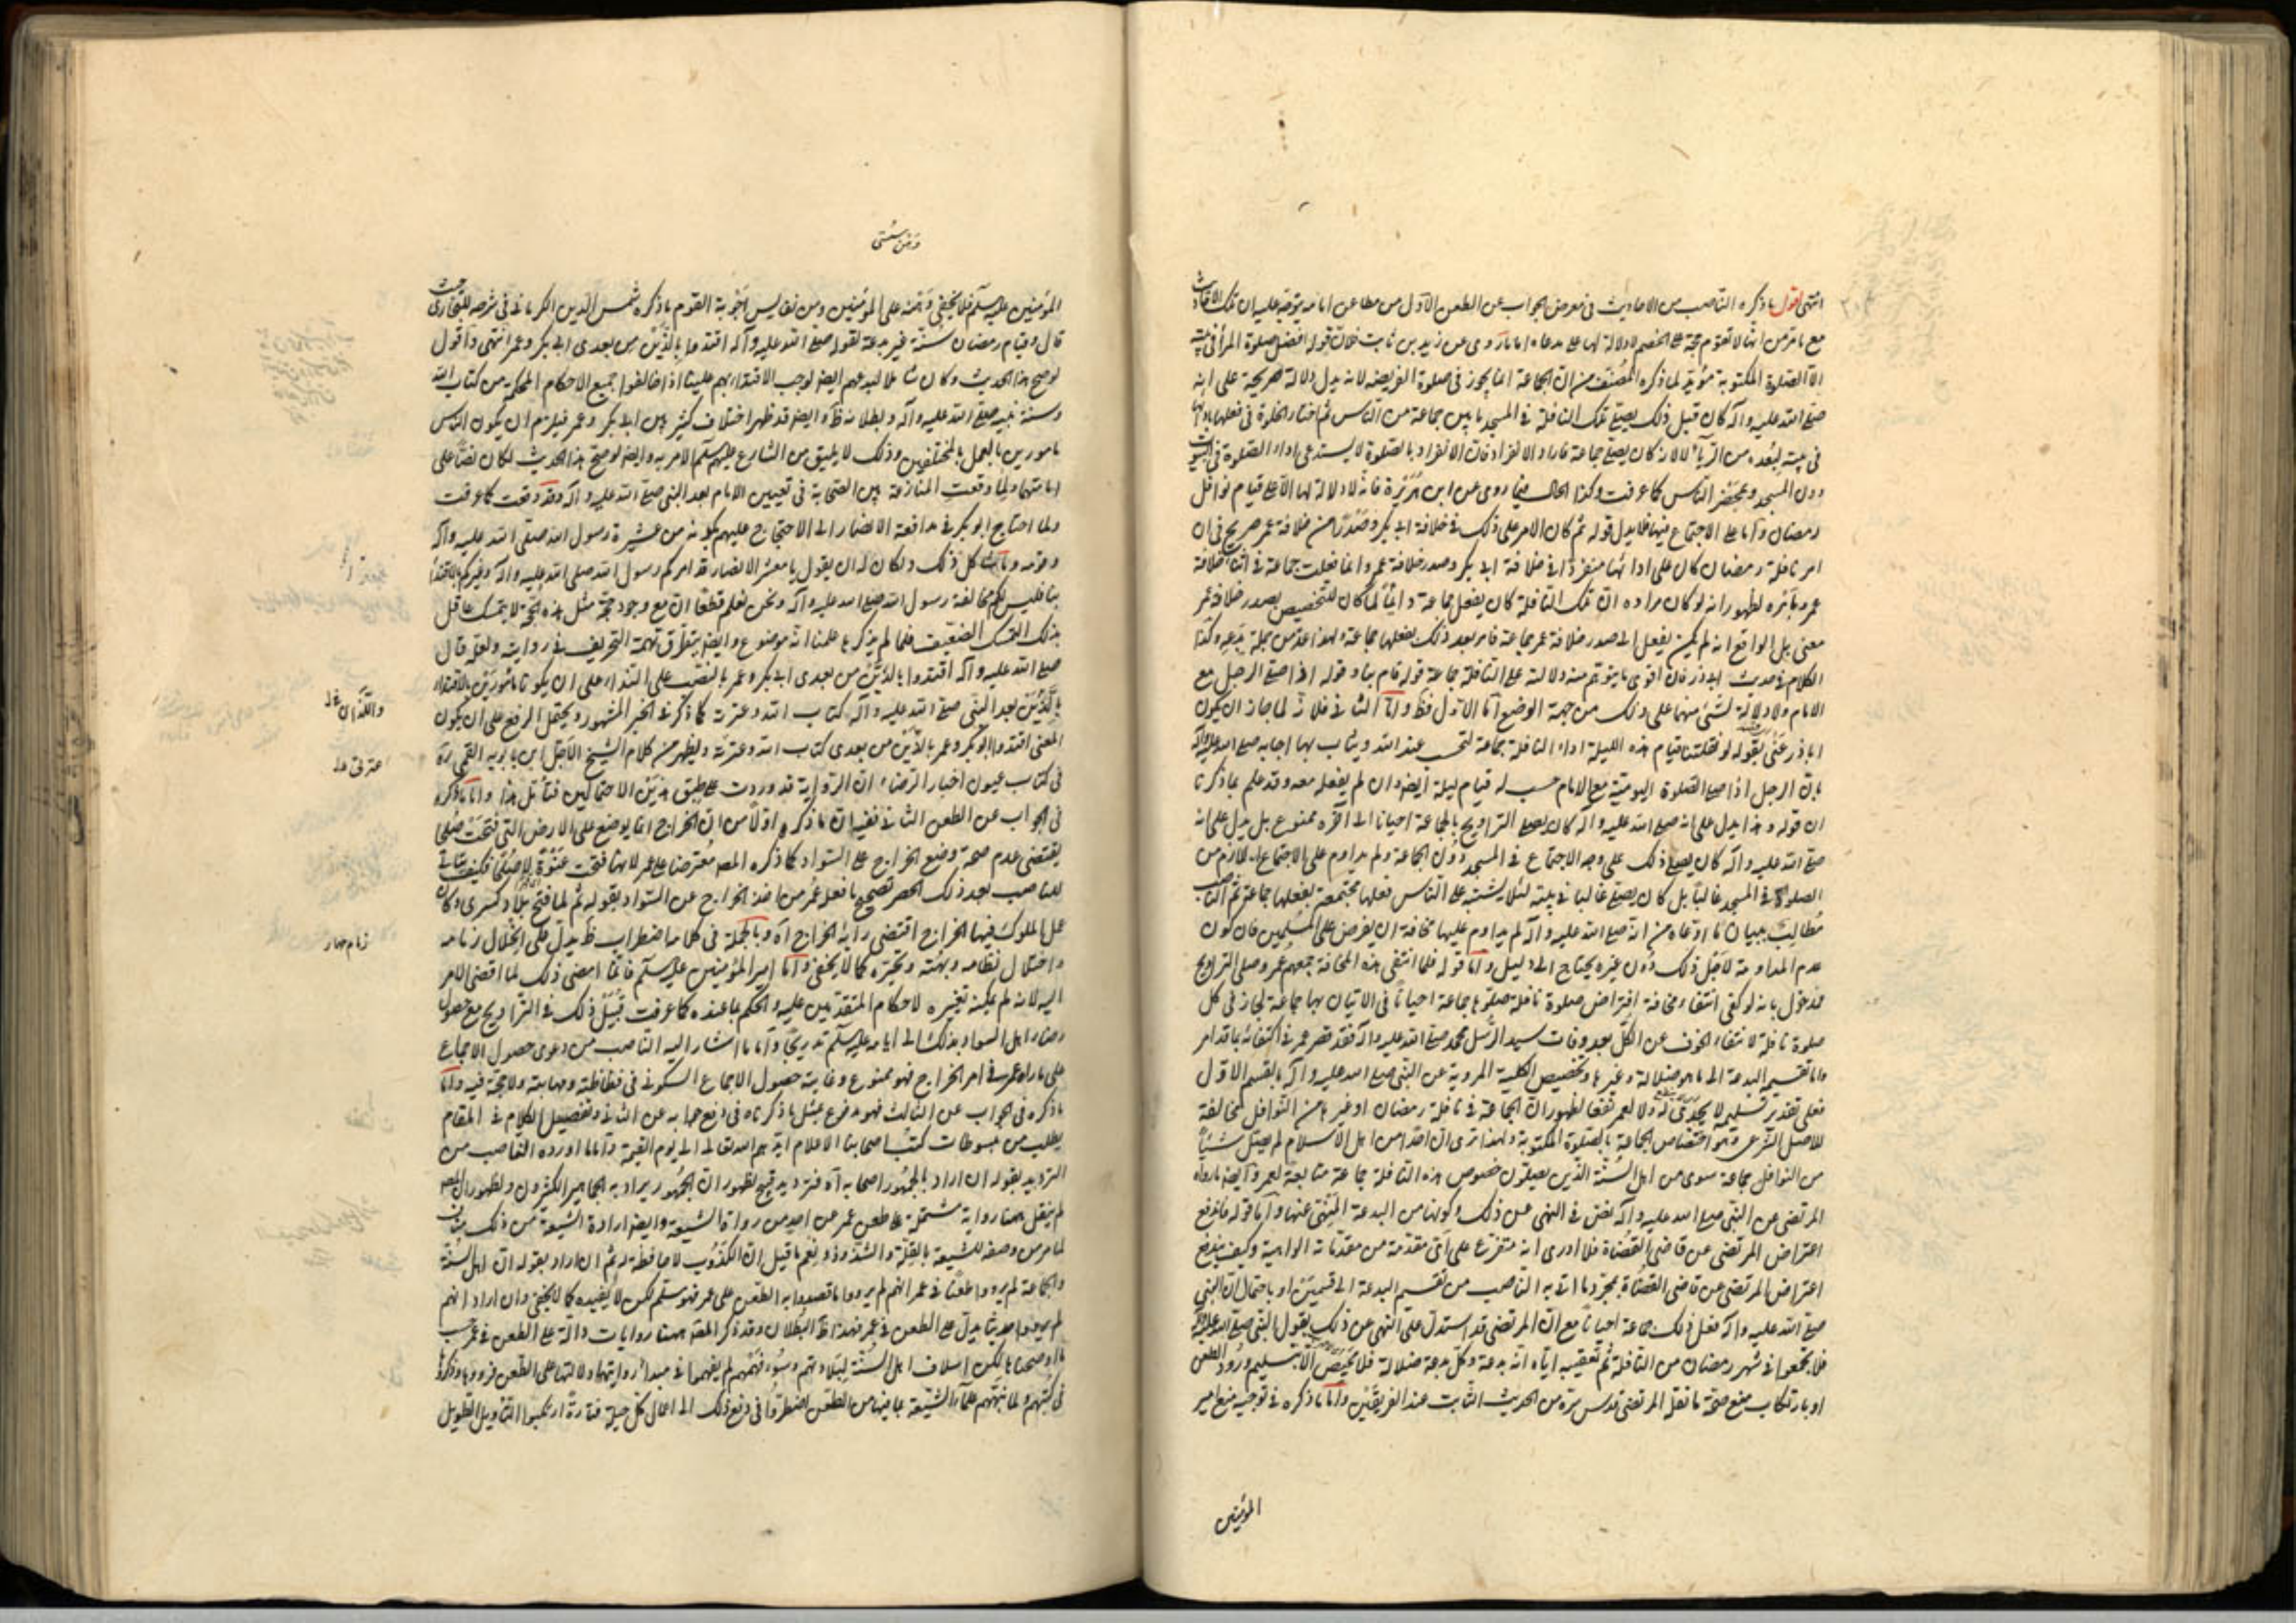 انتهى اقول ما ذكره الناصب من الاحاديث فى معرض الجواب عن الطعن الاول من مطاعن امامه يتوجه عليه ان تلك الاحاديث
مع ما مر من انها لا تقوم حجة على الخصم لا دلالة لها على مدعاه اما ما روى عن زيد بن ثابت فلان قوله افضل صلوة المرأ فى بيته
الا الصلوة المكتوبة مؤيد لما ذكره المصنف من ان الجماعة انما يجوز فى صلوة الفريضه لانه يدل دلالة صريحة على انه
صلى الله عليه وآله كان قبل ذلك يصلى تلك النافلة فى المسجد ما بين جماعة من الناس ثم اختار الخلوة فى فعلها
فى بيته لبعده من الريآء لا لانه كان يصلى جماعة فاراد الانفراد فان الانفراد بالصلوة لا يستدعى اداء الصلوة فى البيت
دون المسجد وبمحضر الناس كما عرفت وكذا الحال فيما روى عن ابى هريرة فانه لا دلالة لها الا على قيام نوافل
رمضان واما على الاجتماع فيها فلا بل قوله ثم كان الامر على ذلك فى خلافة ابى بكر وصدرا من خلافة عمر صريح فى ان
امر نافلة رمضان كان على ادائها منفردا فى خلافة ابى بكر وصدر خلافة عمر وانما فعلت جماعة فى اثناء خلافة
عمر وبامره لظهور انه لو كان مراده ان تلك النافلة كان يفعل جماعة دائما لما كان للتخصيص بصدر خلافة عمر
معنى بل الواقع انه لم يكن يفعل الى صدر خلافة عمر جماعة فامر بعد ذلك بفعلها جماعة ولهذا عد من جملة بدعه وكذا
الكلام فى حديث ابى ذر فان اقوى ما يتوهم منه دلالته على النافلة جماعة قوله قام بنا وقوله اذا صلى الرجل مع
الامام ولا دلالة لشئ منهما على ذلك من جهة الوضع اما الاول فظ واما الثانى فلانه لما جاز ان يكون
اباذر عنى بقوله لو نفلتنا قيام هذه الليلة اداء النافلة جماعة لتحسب عند الله ويثاب بها اجابه صلى الله عليه وآله
بان الرجل اذا صلى الصلوة اليومية مع الامام حسب له قيام ليلة ايضه وان لم يفعل معه وقد علم بما ذكرنا
ان قوله وهذا يدل على انه صلى الله عليه وآله كان يصلى التراويح بالجماعة احيانا الى آخره ممنوع بل يدل على انه
صلى الله عليه وآله كان يصلى ذلك على وجه الاجتماع فى المسجد دون الجماعة ولم يداوم على الاجتماع اللازم من
الصلوة فى المسجد غالبا بل كان يصلى غالبا فى بيته لئلا يشتبه على الناس فعلها مجتمعة بفعلها جماعة ثم الناصب
مطالب ببيان ما ادعاه من انه صلى الله عليه وآله لم يداوم عليها مخافة ان يفرض على المسلمين فان كون
عدم المداومة لاجل ذلك دون غيره يحتاج الى دليل واما قوله فلما انتفى هذه المخافة جمعهم عمر وصلى التراويح
فمدخول بانه لو كفى انتفاء مخافة افتراض صلوة نافلة صلوها جماعة احيانا فى الاتيان بها جماعة لجاز فى كل
صلوة نافلة لانتفاء الخوف عن الكل بعد وفات سيد الرسل محمد صلى الله عليه وآله فقد قصر عمر فى اكتفائه بما قدامر
واما تقسيم البدعة الى ما هو ضلالة وغيرها وتخصيص الكلية المروية عن النبى صلى الله عليه وآله بالقسم الاول
فعلى تقدير تسليمه لا يجدى له ولا لعمر نفعا لظهور ان الجماعة فى نافلة رمضان او غيرها من النوافل مخالفة
للاصل الشرعى وهو اختصاص الجماعة بالصلوة المكتوبة ولهذا ترى ان احدا من اهل الاسلام لم يصل شيئا
من النوافل جماعة سوى من اهل السنة الذين يصلون خصوص هذه النافلة جماعة متابعة لعمر وايضه ما رواه
المرتضى عن النبى صلى الله عليه وآله نص فى النهى عن ذلك وكونها من البدعة المنهى عنها واما قوله فاندفع
اعتراض المرتضى عن قاضى القضاة فلا ادرى انه متفرع على اى مقدمة من مقدماته الواهية وكيف يندفع
اعتراض المرتضى عن قاضى القضاة بمجرد ما اتى به الناصب من تقسيم البدعة الى قسمين او باحتمال ان النبى
صلى الله عليه وآله فعل ذلك جماعة احيانا مع ان المرتضى قد استدل على النهى عن ذلك بقول النبى صلى الله عليه وآله
فلا تجمعوا فى شهر رمضان من النافلة ثم تعقيبه اياه انه بدعة وكل بدعة ضلالة فلا محيص الا بتسليم ورود الطعن
او بارتكاب منع صحة ما نقل المرتضى قدس سره من الحديث الثابت عند الفريقين واما ما ذكره فى توجيه منع امير
المؤمنين
ومن شتى
المؤمنين عليه سلم فلا يخفى وهنه على المؤمنين ومن نفايس اجوبة القوم ما ذكره شمس الدين الكرمانى فى شرحه للبخارى حيث
قال وقيام رمضان سنة غير بدعة لقوله صلى الله عليه وآله اقتدوا بالذين من بعدى ابى بكر وعمر انتهى واقول
لو صح هذا الحديث وكان شاملا لبدعهم ايضه لوجب الاقتداء بهم علينا اذا خالفوا جميع الاحكام المحكمة من كتاب الله
وسنة نبيه صلى الله عليه وآله وبطلانه ظ وايضه قد ظهر اختلاف كثير بين ابى بكر وعمر فيلزم ان يكون الناس
مامورين بالعمل بالمختلفين وذلك لا يليق من الشارع عليه سلم الامر به وايضه لو صح هذا الحديث لكان نصا على
امامتهما ولما وقعت المنازعة بين الصحابة فى تعيين الامام بعد النبى صلى الله عليه وآله وقد وقعت كما عرفت
ولما احتاج ابو بكر فى مدافعة الانصار الى الاحتجاج عليهم بكونه من عشيرة رسول الله صلى الله عليه وآله
وقومه وما كل ذلك ولكان له ان يقول يا معشر الانصار قد امركم رسول الله صلى الله عليه وآله وغيركم بالاقتداء
بنا فليس لكم مخالفة رسول الله صلى الله عليه وآله ونحن نعلم قطعا ان مع وجود حجة مثل هذه الحجة لا يتمسك عاقل
بذلك المتمسك الضعيف فلما لم يذكرها علمنا انه موضوع وايضه يتطرق تهمة التحريف فى روايته ولعله قال
صلى الله عليه وآله اقتدوا بالذين من بعدى ابى بكر وعمر بالنصب على النداء على ان يكونا مامورين بالاقتداء
بالذين بعد النبى صلى الله عليه وآله كتاب الله وعترته كما ذكر فى الخبر المشهور ويحتمل الرفع على ان يكون
المعنى اقتدوا ابو بكر وعمر بالذين من بعدى كتاب الله وعترته ويظهر من كلام الشيخ الاجل ابن بابويه القمى ره
فى كتاب عيون اخبار الرضاء ان الرواية قد وردت على طبق هذين الاحتمالين فتامل هذا واما ما ذكره
فى الجواب عن الطعن الثانى ففيه ان ما ذكره اولا من ان الخراج انما يوضع على الارض التى فتحت صلحا
يقتضى عدم صحة وضع الخراج على السواد كما ذكره المصه معترضا على عمر لانها فتحت عنوة لا صلحا فكيف يتاتى
للناصب بعد ذلك الحصر تصحيح ما فعل عمر من اخذ الخراج عن السواد بقوله ثم لما فتح بلاد كسرى وكان
عمل الملوك فيها الخراج اقتضى رايه الخراج آه وبالجملة فى كلامه اضطراب ظ يدل على انحلال زمامه
واختلال نظامه وبهته وتحيره كما لا يخفى واما امير المؤمنين عليه سلم فانما امضى ذلك لما افضى الامر
اليه لانه لم يمكنه تغييره لاحكام المتقدمين عليه والحكم بما عنده كما عرفت قبيل ذلك فى التراويح مع حصول
رضاء اهل السواد بذلك الى ايامه عليه سلم تدريجا واما ما اشار اليه الناصب من دعوى حصول الاجماع
على ما راه عمر فى امر الخراج فهو ممنوع وغايته حصول الاجماع السكوتى فى فظاظته ومهابته ولا حجة فيه واما
ما ذكره فى الجواب عن الثالث فهو مدفوع بمثل ما ذكرناه فى دفع جوابه عن الثانى وتفصيل الكلام فى المقام
يطلب من مبسوطات كتب اصحابنا الاعلام ايدهم الله تعالى الى يوم القيمة واما ما اورده الناصب من
الترديد بقوله ان اراد بالجمهور اصحابه آه فترديد قبيح لظهور ان الجمهور يراد به الجماهير الكثيرون ولظهور ان المصه
لم ينقل ههنا رواية مشتملة على طعن عمر عن احد من رواة الشيعة وايضه ارادة الشيعة من ذلك ينافى
لما مر من وصفه للشيعة بالقلة والشذوذ ونعم ما قيل ان الكذوب لا حافظة له ثم ان اراد بقوله ان اهل السنة
والجماعة لم يرووا طعنا فى عمر انهم لم يرووا ما قصدوا به الطعن على عمر فهو مسلم لكن لا يفيده كما لا يخفى وان اراد انهم
لم يرووا حديثا يدل على الطعن فى عمر فهذا ظ البطلان وقد ذكر المصه ههنا روايات دالة على الطعن فى عمر حسب
ما اوضحناها لكن اسلاف اهل السنة لبلادتهم وسوء فهمهم لم يفهموا فى مبدأ روايتهم دلالتها على الطعن فرووها وذكروها
فى كتبهم ولما نبههم علماء الشيعة بما فيها من الطعن اضطروا فى دفع ذلك الى اعمال كل حيلة فتارة ارتكبوا التاويل الطويل
واللذان
عترتى
زمام مهار